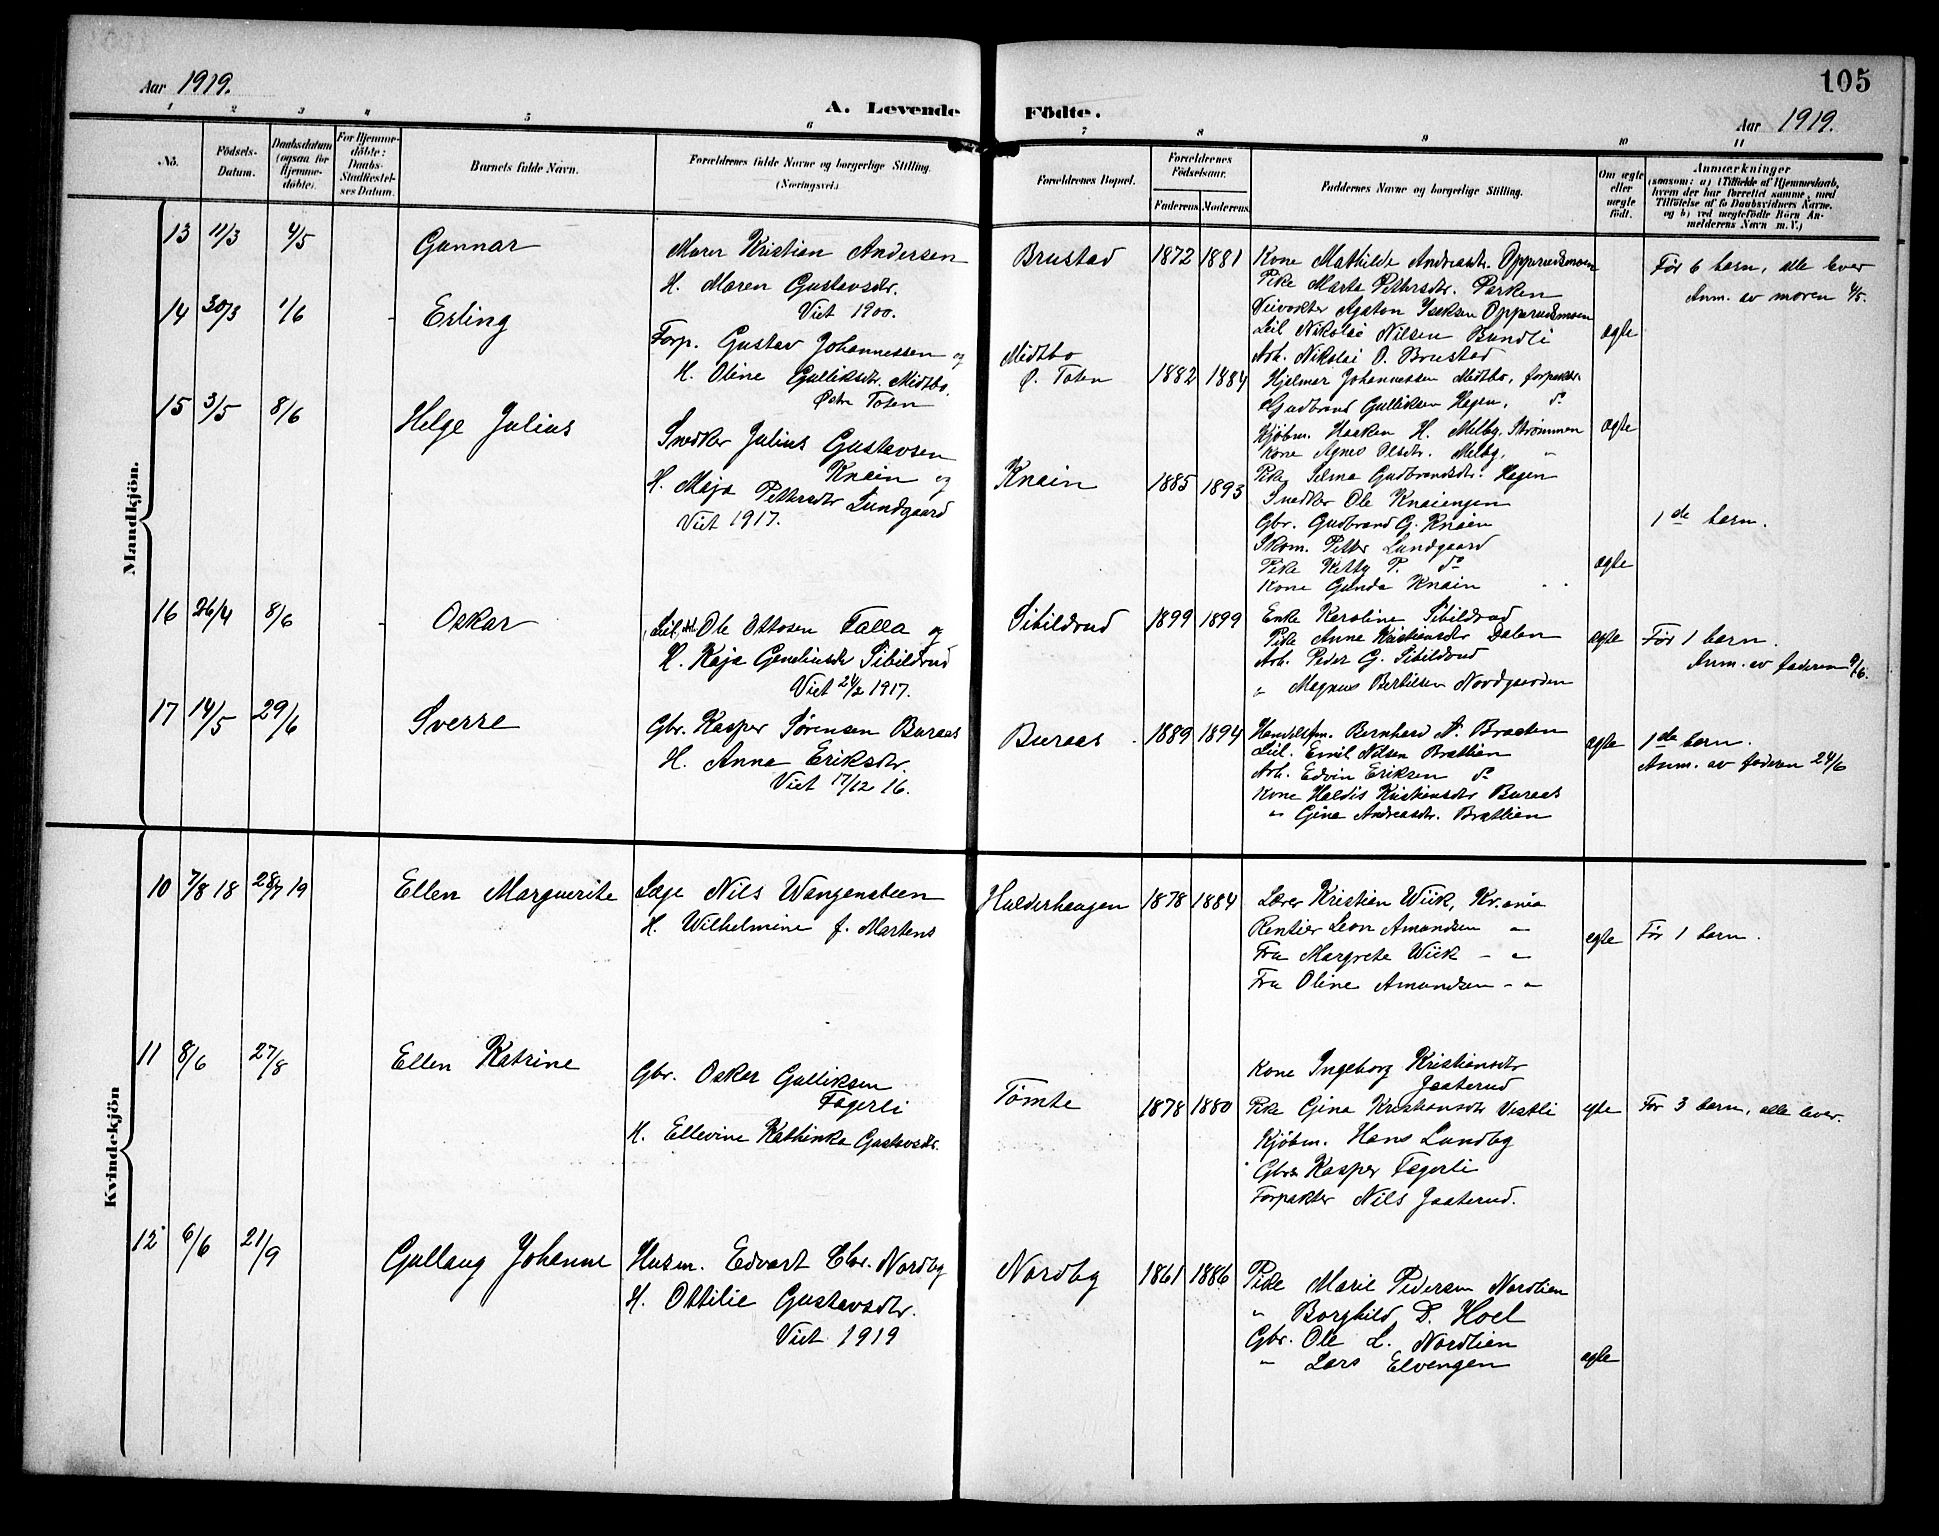 105
Aar 1919.
A. Levende Födte.
Aar 1919.
1 2 3 4 5 6 7 8 9 10 11
No.
Födsels-Datum.
Daabsdatum (ogsaa for Hjemmedöbte).
For Hjemmedöbte: Daabs-Stadfæstelses Datum.
Barnets fulde Navn.
Forældrenes fulde Navne og borgerlige Stilling. (Næringsvei.)
Forældrenes Bopæl.
Forældrenes Födselsaar.
Faderens. Moderens.
Faddernes Navne og borgerlige Stilling.
Om ægte eller uægte födt.
Anmærkninger
(saasom: a) i Tilfælde af Hjemmedaab,
hvem der har forrettet samme, med
Tilföielse af to Daabsvidners Navne.
og b) ved uægtefödte Börn An-
melderens Navn m. V.)
Mandkjön.
13 11/3 4/5 Gunnar
Murer Kristian Andersen
H. Maren Gustavsdtr.
Viet 1900.
Brustad 1872 1881
Kone Mathilde Andreasdtr. Opperudsmoen
Pike Marta Pettersdtr. Parken
Veivokter Agaton Isaksen Opperudsmoen
Leil Nikolai Nilsen Bundli
Arb. Nikolai O. Brustad
ægte
Før 6 barn, alle lever
Anm. av moren 4/5.
14 30/3 1/6 Erling
Forp. Gustav Johannessen og
H. Oline Gulliksdtr. Midtbo.
Østre Toten
Midtbo
Ø. Toten
1882 1884
Hjelmar Johannessen Midtbo, forpakter
Gudbrand Gulliksen Hagen, do
Kjøbm. Haaken H. Melby, Strømmen
Kone Agnes Olsdtr. Melby, "
Pike Selma Gudbrandsdtr. Hagen
ægte
15 3/5 8/6 Helge Julius
Snedker Julius Gustavsen
Knain og
H. Maja Pettersdtr Lundgaard
Viet 1917.
Knain 1885 1893
Snedker Ole Knaiengen
Gbr. Gudbrand G. Knain
Skom. Petter Lundgaard
Pike Kitty P. do
Kone Gunda Knain
ægte
1de barn.
16 26/4 8/6 Oskar
Leil. Ole Ottosen Falla og
H. Kaja Gundine Sibildrud
Viet 24/2 1917.
Sibildrud 1899 1899
Enke Karoline Sibildrud
Pike Anna Kristiansdtr Dalen
Arb. Peder G. Sibildrud
" Magnus Bertilsen Nordgaarden
ægte
Før 1 barn.
Anm. av faderen 9/6.
17 14/5 29/6 Sverre
Gbr. Kasper Sørensen Buraas
H. Anna Eriksdtr.
Viet 17/12 16.
Buraas 1889 1894
Handelsm. Bernhard A. Braaten
Leil. Emil Nilsen Brattlien
Arb. Edvin Eriksen do
Kone Haldis Kristiansdtr Buraas
" Gina Andreasdtr. Brattlien
ægte
1de barn.
Anm. av faderen 24/6
Kvindekjön
10 7/8 18 28/7 19 Ellen Marguerite
Læge Nils Wangensteen
H. Wilhelmine f. Martens
Hulderhaugen 1878 1884
Lærer Kristian Wiik, Kr.ania
Rentier Leon Amundsen "
Fru Margrete Wiik - "
Fru Oline Amundsen - "
egte
Før 1 barn.
11 8/6 27/8 Ellen Katrine
Gbr. Oskar Gulliksen
Fagerli
H. Ellevine Kathinka Gustavsdtr.
Tømte 1878 1880
Kone Ingeborg Kristiansdtr
Jaaterud
Pike Gina Kristiansdtr Vestli
Kjøbm. Hans Lundby
Gbr. Kasper Fagerli
Forpakter Nils Jaaterud.
egte
Før 3 barn, alle lever.
12 6/6 21/9 Gullaug Johanne
Husm. Edvart Chr. Nordby
H. Ottilie Gustavsdtr.
Viet 1919
Nordby 1861 1886
Pike Marie Pedersen Nordlien
" Borghild D. Hoel
Gbr. Ole L. Nordlien
" Lars Elvengen
ægte